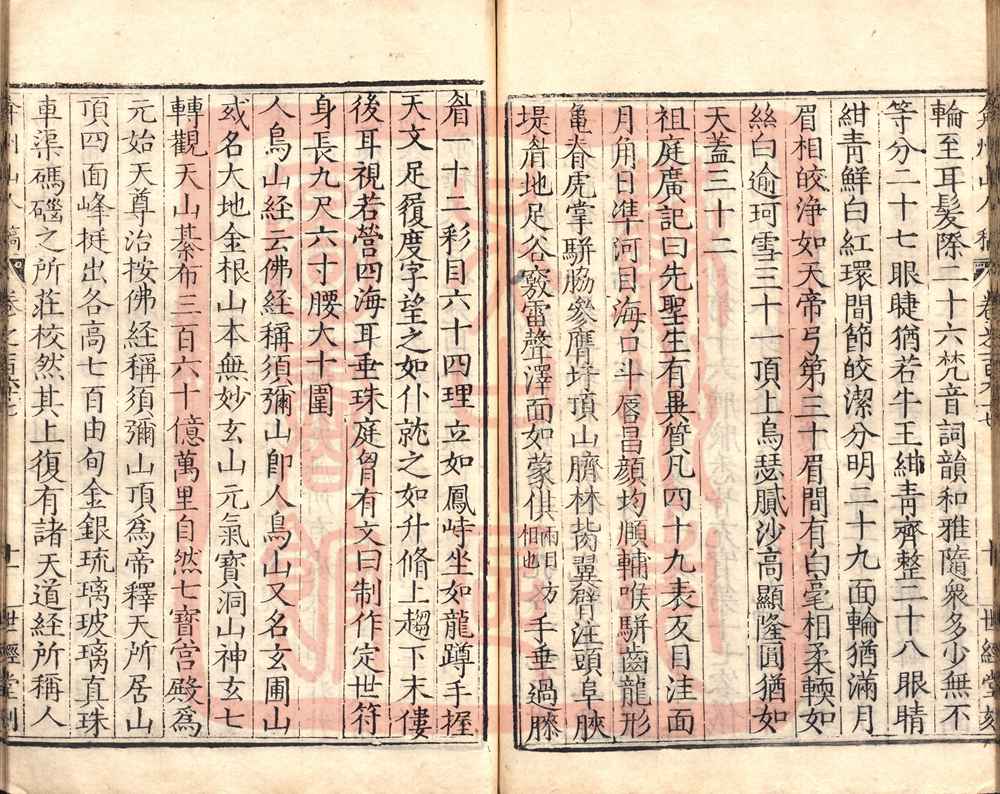 弇州山人稿 卷之一百六十七 十一 世經堂刻
輪至耳髮際二十六梵音詞韻和雅隨衆多少無不
等分二十七眼睫猶若牛王紺青齊整二十八眼睛
紺青鮮白紅環間節皎潔分明二十九面輪猶滿月
眉相皎淨如天帝弓第三十眉間有白毫相柔輭如
絲白逾珂雪三十一頂上烏瑟膩沙高顯隆圓猶如
天蓋三十二
祖庭廣記曰先聖生有異質凡四十九表反目洼面
月角日準河目海口斗唇昌顏均頤輔喉駢齒龍形
龜脊虎掌駢脇參膺圩頂山臍林背翼臂注頭阜脥
堤眉地足谷竅雷聲澤面如蒙倛兩目相也方手垂過膝
眉一十二彩目六十四理立如鳳峙坐如龍蹲手握
天文足履度字望之如仆就之如升脩上趨下末僂
後耳視若營四海耳垂珠庭胷有文曰制作定世符
身長九尺六寸腰大十圍
人鳥山經云佛經稱須彌山卽人鳥山又名玄圃山
或名大地金根山本無妙玄山元氣寶洞山神玄七
轉觀天山綦布三百六十億萬里自然七寶宮殿爲
元始天尊治按佛經稱須彌山頂爲帝釋天所居山
頂四面峰挺出各高七百由旬金銀琉璃玻璃真珠
車渠碼碯之所莊校然其上復有諸天道經所稱人
弇州山人稿 卷之一百六十七 十一 世經堂刻